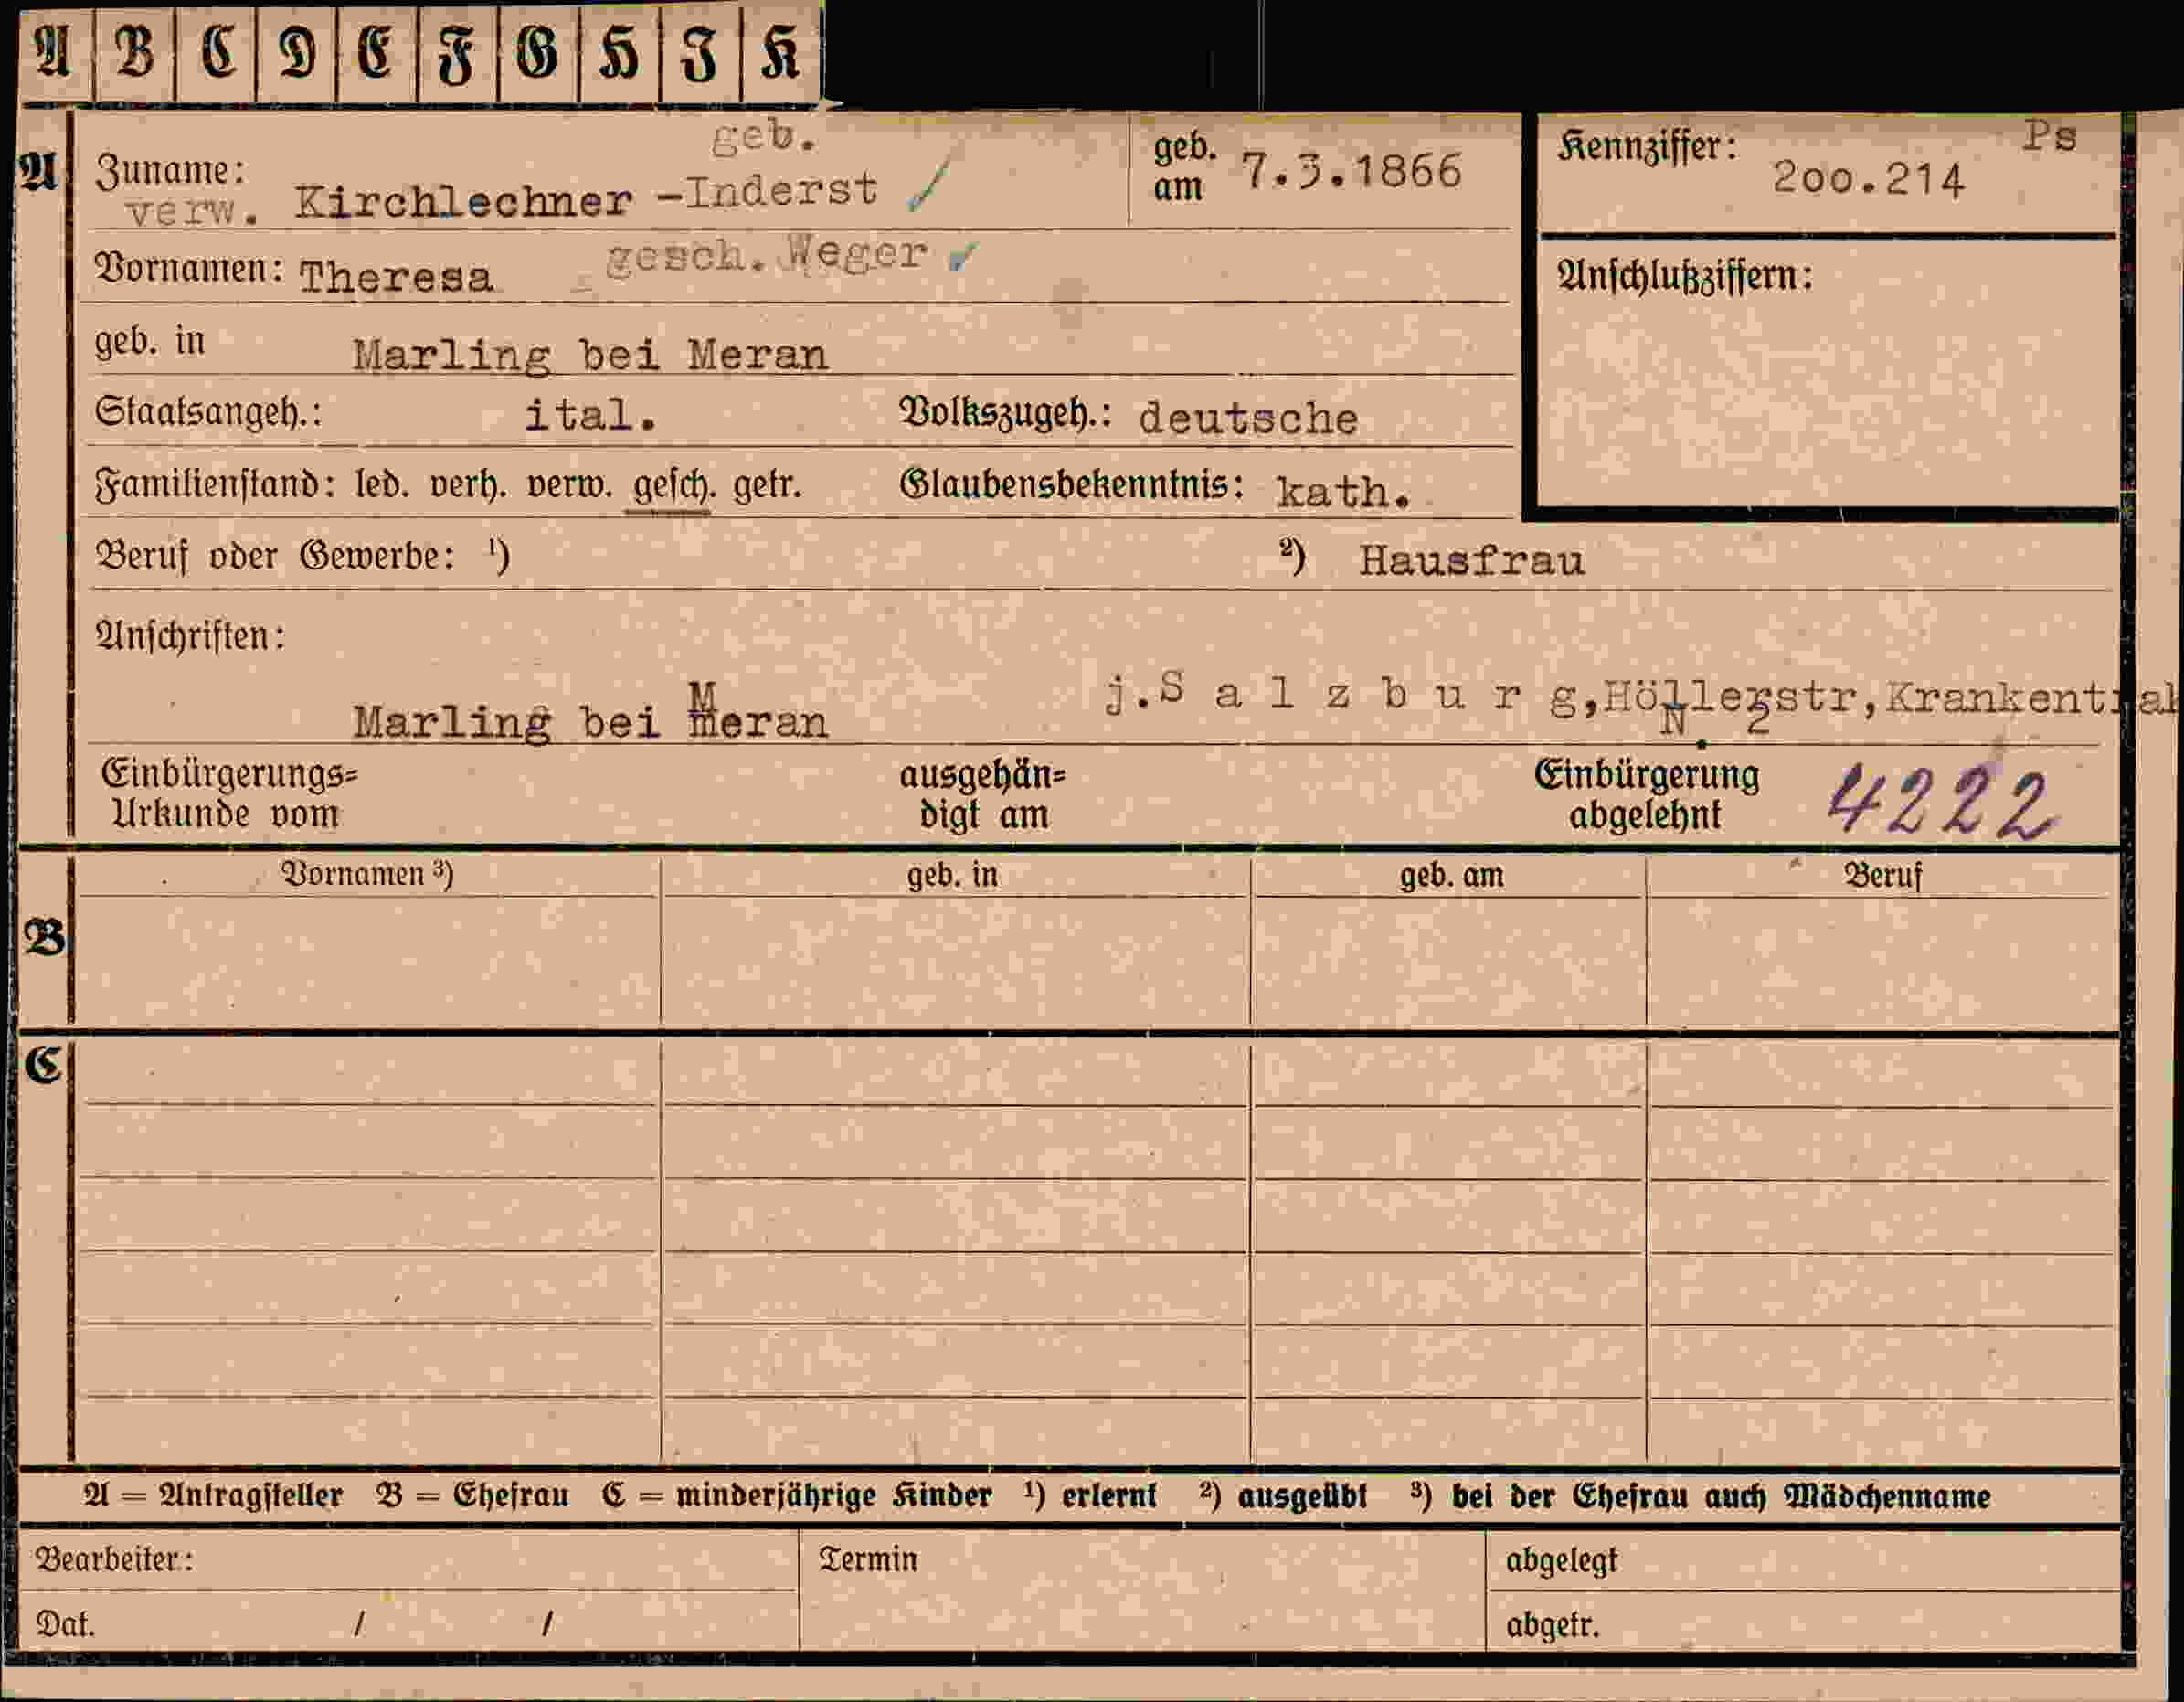 A B C D E F G H I K
A
geb.
Zuname: verw. Kirchlechner -Inderst ✓
geb. am 7.3.1866
Kennziffer: 200.214 Ps
Vornamen: Theresa gesch. Weger ✓
Anschlußziffern:
geb. in Marling bei Meran
Staatsangeh.: ital. Volkszugeh.: deutsche
Familienstand: led. verh. verw. gesch. getr. Glaubensbekenntnis: kath.
Beruf oder Gewerbe: ¹) ²) Hausfrau
Anschriften:
Marling bei Meran j.S a l z b u r g,
Einbürgerungs=
Urkunde vom
ausgehän=
digt am
Einbürgerung
abgelehnt 4222
Vornamen ³) geb. in geb. am Beruf
B
C
A = Antragsteller B = Ehefrau C = minderjährige Kinder ¹) erlernt ²) ausgeübt ³) bei der Ehefrau auch Mädchenname
Bearbeiter: Termin abgelegt
Dat. / / abgetr.